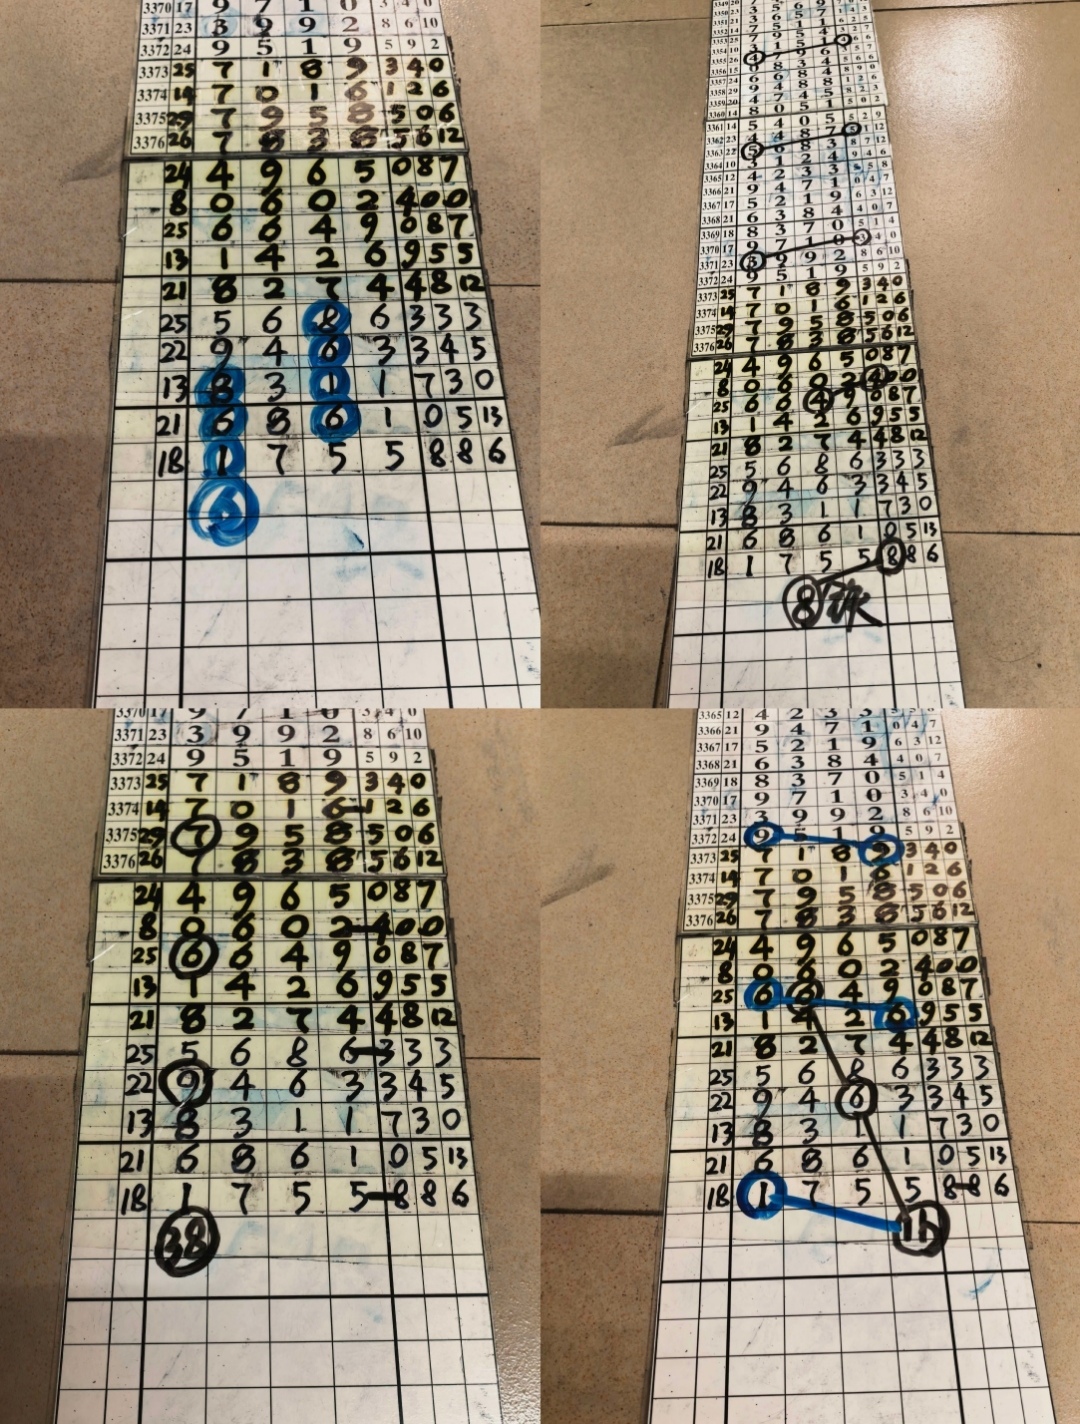 3370 17 9 7 1 0 3 4 0
3371 23 3 9 9 2 8 6 10
3372 24 9 5 1 9 5 9 2
3373 25 7 1 8 9 3 4 0
3374 14 7 0 1 6 1 2 6
3375 29 7 9 5 8 5 0 6
3376 26 7 8 3 8 5 6 12
24 4 9 6 5 0 8 7
8 0 6 0 2 4 0 0
25 6 6 4 9 0 8 7
13 1 4 2 6 9 5 5
21 8 2 7 4 4 8 12
25 5 6 8 6 3 3 3
22 9 4 6 3 3 4 5
13 8 3 1 1 7 3 0
21 6 8 6 1 0 5 13
18 1 7 5 5 8 8 6
6
3361 14 5 4 0 5 5 2 9
3362 23 4 4 8 7
3363 22 5 6 8 3
3364 10 3 1 2 4
3365 12 4 2 3 3
3366 21 9 4 7 1 0 4 7
3367 17 5 2 1 9 6 3 12
3368 21 6 3 8 4 4 0 7
3369 18 8 3 7 0 5 1 4
3370 17 9 7 1 0 3 4 0
3371 23 3 9 9 2 8 6 10
3372 24 9 5 1 9 5 9 2
3373 25 7 1 8 9 3 4 0
3374 14 7 0 1 6 1 2 6
3375 29 7 9 5 8 5 0 6
3376 26 7 8 3 8 5 6 12
24 4 9 6 5 0 8 7
8 0 6 0 2 4 0 0
25 6 6 4 9 0 8 7
13 1 4 2 6 9 5 5
21 8 2 7 4 4 8 12
25 5 6 8 6 3 3 3
22 9 4 6 3 3 4 5
13 8 3 1 1 7 3 0
21 6 8 6 1 0 5 13
18 1 7 5 5 8 8 6
8
3370 17 9 7 1 0 3 4 0
3371 23 3 9 9 2 8 6 10
3372 24 9 5 1 9 5 9 2
3373 25 7 1 8 9 3 4 0
3374 14 7 0 1 6 1 2 6
3375 29 7 9 5 8 5 0 6
3376 26 7 8 3 8 5 6 12
24 4 9 6 5 0 8 7
8 0 6 0 2 4 0 0
25 6 6 4 9 0 8 7
13 1 4 2 6 9 5 5
21 8 2 7 4 4 8 12
25 5 6 8 6 3 3 3
22 9 4 6 3 3 4 5
13 8 3 1 1 7 3 0
21 6 8 6 1 0 5 13
18 1 7 5 5 8 8 6
38
3365 12 4 2 3 3
3366 21 9 4 7 1 0 4 7
3367 17 5 2 1 9 6 3 12
3368 21 6 3 8 4 4 0 7
3369 18 8 3 7 0 5 1 4
3370 17 9 7 1 0 3 4 0
3371 23 3 9 9 2 8 6 10
3372 24 9 5 1 9 5 9 2
3373 25 7 1 8 9 3 4 0
3374 14 7 0 1 6 1 2 6
3375 29 7 9 5 8 5 0 6
3376 26 7 8 3 8 5 6 12
24 4 9 6 5 0 8 7
8 0 6 0 2 4 0 0
25 6 6 4 9 0 8 7
13 1 4 2 6 9 5 5
21 8 2 7 4 4 8 12
25 5 6 8 6 3 3 3
22 9 4 6 3 3 4 5
13 8 3 1 1 7 3 0
21 6 8 6 1 0 5 13
18 1 7 5 5 8 8 6
16